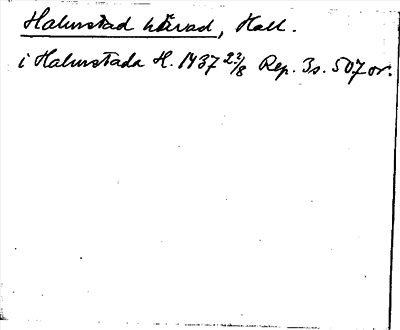 Halmstad härad, Hall.
i Halmstada H. 1437 22/8 Rep. 3 s. 507 or.